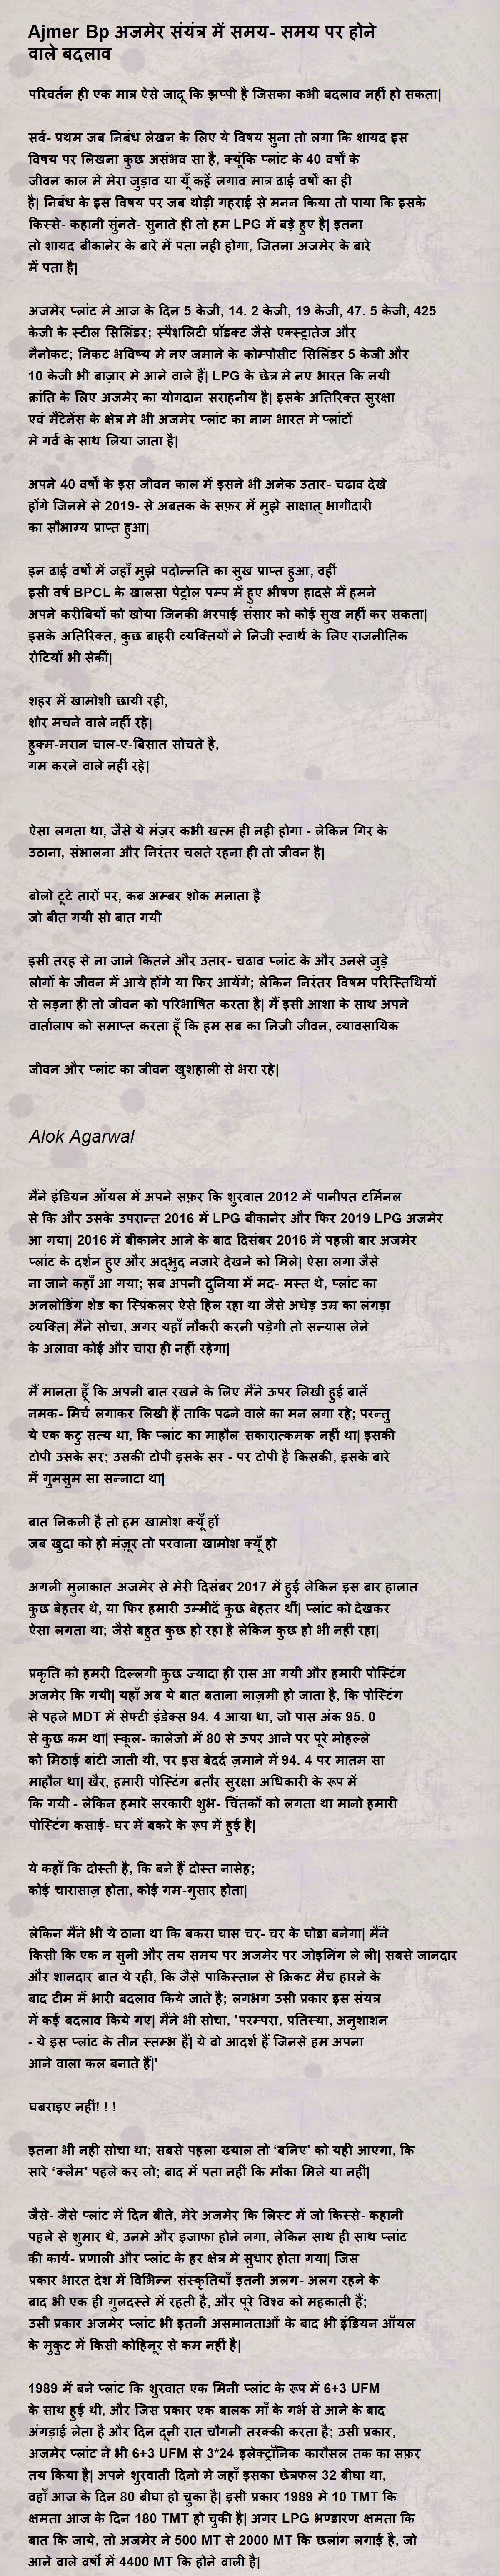 Ajmer Bp अजमेर संयंत्र में समय- समय पर होने
वाले बदलाव
परिवर्तन ही एक मात्र ऐसे जादू कि झप्पी है जिसका कभी बदलाव नहीं हो सकता|
सर्व- प्रथम जब निबंध लेखन के लिए ये विषय सुना तो लगा कि शायद इस
विषय पर लिखना कुछ असंभव सा है, क्यूंकि प्लांट के 40 वर्षों के
जीवन काल मे मेरा जुड़ाव या यूँ कहें लगाव मात्र ढाई वर्षों का ही
है| निबंध के इस विषय पर जब थोड़ी गहराई से मनन किया तो पाया कि इसके
किस्से- कहानी सुंनते- सुनाते ही तो हम LPG में बड़े हुए है| इतना
तो शायद बीकानेर के बारे में पता नही होगा, जितना अजमेर के बारे
में पता है|
अजमेर प्लांट मे आज के दिन 5 केजी, 14. 2 केजी, 19 केजी, 47. 5 केजी, 425
केजी के स्टील सिलिंडर; स्पैशलिटी प्रॉडक्ट जैसे एक्स्ट्रातेज और
नैनोकट; निकट भविष्य मे नए जमाने के कोम्पोसीट सिलिंडर 5 केजी और
10 केजी भी बाज़ार मे आने वाले हैं| LPG के छेत्र मे नए भारत कि नयी
क्रांति के लिए अजमेर का योगदान सराहनीय है| इसके अतिरिक्त सुरक्षा
एवं मैंटेनेंस के क्षेत्र मे भी अजमेर प्लांट का नाम भारत मे प्लांटों
मे गर्व के साथ लिया जाता है|
अपने 40 वर्षों के इस जीवन काल में इसने भी अनेक उतार- चढाव देखे
होंगे जिनमे से 2019- से अबतक के सफ़र में मुझे साक्षात् भागीदारी
का सौभाग्य प्राप्त हुआ|
इन ढाई वर्षों में जहाँ मुझे पदोन्नति का सुख प्राप्त हुआ, वहीं
इसी वर्ष BPCL के खालसा पेट्रोल पम्प में हुए भीषण हादसे में हमने
अपने करीबियों को खोया जिनकी भरपाई संसार को कोई सुख नहीं कर सकता|
इसके अतिरिक्त, कुछ बाहरी व्यक्तियों ने निजी स्वार्थ के लिए राजनीतिक
रोटियों भी सेकीं|
शहर में खामोशी छायी रही,
शोर मचने वाले नहीं रहे|
हुक्म-मरान चाल-ए-बिसात सोचते है,
गम करने वाले नहीं रहे|
ऐसा लगता था, जैसे ये मंज़र कभी खत्म ही नही होगा - लेकिन गिर के
उठाना, संभालना और निरंतर चलते रहना ही तो जीवन है|
बोलो टूटे तारों पर, कब अम्बर शोक मनाता है
जो बीत गयी सो बात गयी
इसी तरह से ना जाने कितने और उतार- चढाव प्लांट के और उनसे जुड़े
लोगों के जीवन में आये होंगे या फिर आयेंगे; लेकिन निरंतर विषम परिस्तिथियों
से लड़ना ही तो जीवन को परिभाषित करता है| मैं इसी आशा के साथ अपने
वार्तालाप को समाप्त करता हूँ कि हम सब का निजी जीवन, व्यावसायिक
जीवन और प्लांट का जीवन खुशहाली से भरा रहे|
Alok Agarwal
मैंने इंडियन ऑयल में अपने सफ़र कि शुरवात 2012 में पानीपत टर्मिनल
से कि और उसके उपरान्त 2016 में LPG बीकानेर और फिर 2019 LPG अजमेर
आ गया| 2016 में बीकानेर आने के बाद दिसंबर 2016 में पहली बार अजमेर
प्लांट के दर्शन हुए और अद्भुद नज़ारे देखने को मिले| ऐसा लगा जैसे
ना जाने कहाँ आ गया; सब अपनी दुनिया में मद- मस्त थे, प्लांट का
अनलोडिंग शेड का स्प्रिंकलर ऐसे हिल रहा था जैसे अधेड़ उम्र का लंगड़ा
व्यक्ति| मैंने सोचा, अगर यहाँ नौकरी करनी पड़ेगी तो सन्यास लेने
के अलावा कोई और चारा ही नहीं रहेगा|
मैं मानता हूँ कि अपनी बात रखने के लिए मैंने ऊपर लिखी हुई बातें
नमक- मिर्च लगाकर लिखी हैं ताकि पढने वाले का मन लगा रहे; परन्तु
ये एक कटु सत्य था, कि प्लांट का माहौल सकारात्कमक नहीं था| इसकी
टोपी उसके सर; उसकी टोपी इसके सर - पर टोपी है किसकी, इसके बारे
में गुमसुम सा सन्नाटा था|
बात निकली है तो हम खामोश क्यूँ हों
जब खुदा को हो मंज़ूर तो परवाना खामोश क्यूँ हो
अगली मुलाकात अजमेर से मेरी दिसंबर 2017 में हुई लेकिन इस बार हालात
कुछ बेहतर थे, या फिर हमारी उम्मीदें कुछ बेहतर थीं| प्लांट को देखकर
ऐसा लगता था; जैसे बहुत कुछ हो रहा है लेकिन कुछ हो भी नहीं रहा|
प्रकृति को हमरी दिल्लगी कुछ ज्यादा ही रास आ गयी और हमारी पोस्टिंग
अजमेर कि गयी| यहाँ अब ये बात बताना लाज़मी हो जाता है, कि पोस्टिंग
से पहले MDT में सेफ्टी इंडेक्स 94. 4 आया था, जो पास अंक 95. 0
से कुछ कम था| स्कूल- कालेजो में 80 से ऊपर आने पर पूरे मोहल्ले
को मिठाई बांटी जाती थी, पर इस बेदर्द ज़माने में 94. 4 पर मातम सा
माहौल था| खैर, हमारी पोस्टिंग बतौर सुरक्षा अधिकारी के रूप में
कि गयी - लेकिन हमारे सरकारी शुभ- चिंतकों को लगता था मानो हमारी
पोस्टिंग कसाई- घर में बकरे के रूप में हुई है|
ये कहाँ कि दोस्ती है, कि बने हैं दोस्त नासेह;
कोई चारासाज़ होता, कोई गम-गुसार होता|
लेकिन मैंने भी ये ठाना था कि बकरा घास चर- चर के घोडा बनेगा| मैंने
किसी कि एक न सुनी और तय समय पर अजमेर पर जोइनिंग ले ली| सबसे जानदार
और शानदार बात ये रही, कि जैसे पाकिस्तान से क्रिकट मैच हारने के
बाद टीम में भारी बदलाव किये जाते है; लगभग उसी प्रकार इस संयत्र
में कई बदलाव किये गए| मैंने भी सोचा, 'परम्परा, प्रतिस्था, अनुशाशन
- ये इस प्लांट के तीन स्तम्भ हैं| ये वो आदर्श हैं जिनसे हम अपना
आने वाला कल बनाते हैं|'
घबराइए नहीं! ! !
इतना भी नही सोचा था; सबसे पहला ख्याल तो ‘बनिए' को यही आएगा, कि
सारे ‘क्लैम' पहले कर लो; बाद में पता नहीं कि मौका मिले या नहीं|
जैसे- जैसे प्लांट में दिन बीते, मेरे अजमेर कि लिस्ट में जो किस्से- कहानी
पहले से शुमार थे, उनमे और इजाफा होने लगा, लेकिन साथ ही साथ प्लांट
की कार्य- प्रणाली और प्लांट के हर क्षेत्र मे सुधार होता गया| जिस
प्रकार भारत देश में विभिन्न संस्कृतियाँ इतनी अलग- अलग रहने के
बाद भी एक ही गुलदस्ते में रहती है, और पूरे विश्व को महकाती हैं;
उसी प्रकार अजमेर प्लांट भी इतनी असमानताओं के बाद भी इंडियन ऑयल
के मुकुट में किसी कोहिनूर से कम नहीं है|
1989 में बने प्लांट कि शुरवात एक मिनी प्लांट के रूप में 6+3 UFM
के साथ हुई थी, और जिस प्रकार एक बालक माँ के गर्भ से आने के बाद
अंगड़ाई लेता है और दिन दूनी रात चौगनी तरक्की करता है; उसी प्रकार,
अजमेर प्लांट ने भी 6+3 UFM से 3*24 इलेक्ट्रॉनिक कारौसल तक का सफ़र
तय किया है| अपने शुरवाती दिनो मे जहाँ इसका छेत्रफल 32 बीघा था,
वहाँ आज के दिन 80 बीघा हो चुका है| इसी प्रकार 1989 मे 10 TMT कि
क्षमता आज के दिन 180 TMT हो चुकी है| अगर LPG भण्डारण क्षमता कि
बात कि जाये, तो अजमेर ने 500 MT से 2000 MT कि छलांग लगाई है, जो
आने वाले वर्षो में 4400 MT कि होने वाली है|